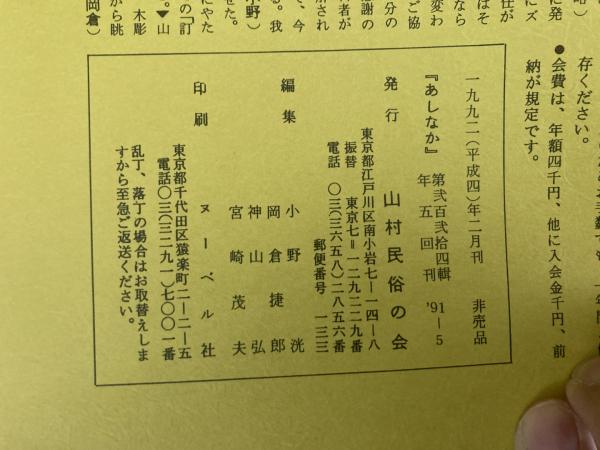 存ください。
●会費は、年額四千円、他に入会金千円、前
納が規定です。
一九九二(平成四)年二月刊　非売品
『あしなか』第弐百弐拾四輯　'91—5
年五回刊
発行　山村民俗の会
東京都江戸川区南小岩七—一四—八
振替　東京七=一二九二二九番
電話　〇三(三六五八)二八五六番
郵便番号　一三三
編集　小野洸
岡倉捷郎
神山弘
宮崎茂夫
印刷　ヌーベル社
東京都千代田区猿楽町二—二—五
電話〇三(三二九一)七〇〇一番
乱丁、落丁の場合はお取替えしま
すから至急ご返送ください。